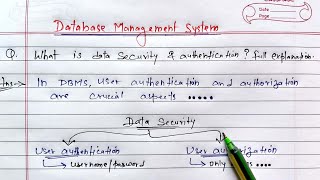 Date
Page
Database Management System
Q. What is data Security & authentication? full explanation.
Ans→ In DBMS, User authentication and authorization
are crucial aspects .....
Data Security
User authentication User authorization
↳ Username/password ↳ only ....